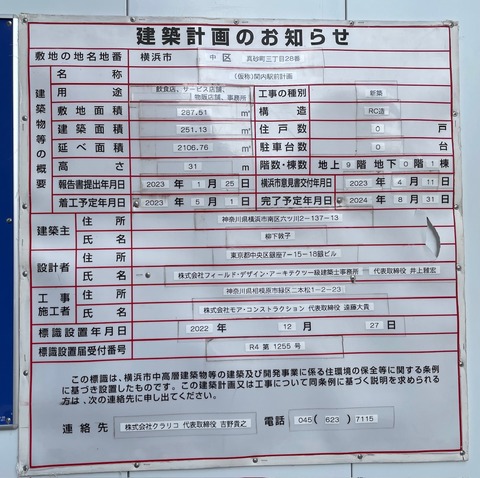 建築計画のお知らせ
敷地の地名地番 横浜市 中 区 真砂町三丁目28番
建築物等の概要
名称 (仮称)関内駅前計画
用途 飲食店、サービス店舗、物販店舗、事務所 工事の種別 新築
敷地面積 287.51 ㎡ 構造 RC造
建築面積 251.13 ㎡ 住戸数 0 戸
延べ面積 2106.76 ㎡ 駐車台数 0 台
高さ 31 m 階数・棟数 地上 9 階 地下 0 階 1 棟
報告書提出年月日 2023 年 1 月 25 日 横浜市意見書交付年月日 2023 年 4 月 11 日
着工予定年月日 2023 年 5 月 1 日 完了予定年月日 2024 年 8 月 31 日
建築主 住所 神奈川県横浜市南区六ツ川2-137-13
氏名 柳下敦子
設計者 住所 東京都中央区銀座7-15-18銀ビル
氏名 株式会社フィールド・デザイン・アーキテクツ一級建築士事務所 代表取締役 井上雅宏
工事施工者 住所 神奈川県相模原市緑区二本松1-2-23
氏名 株式会社モア・コンストラクション 代表取締役 遠藤大貴
標識設置年月日 2022 年 12 月 27 日
標識設置届受付番号 R4 第 1255 号
この標識は、横浜市中高層建築物等の建築及び開発事業に係る住環境の保全等に関する条例
に基づき設置したものです。この建築計画又は工事について同条例に基づく説明を求められる
方は、次の連絡先に申し出てください。
連絡先 株式会社クラリコ 代表取締役 吉野貴之 電話 045 ( 623 ) 7115